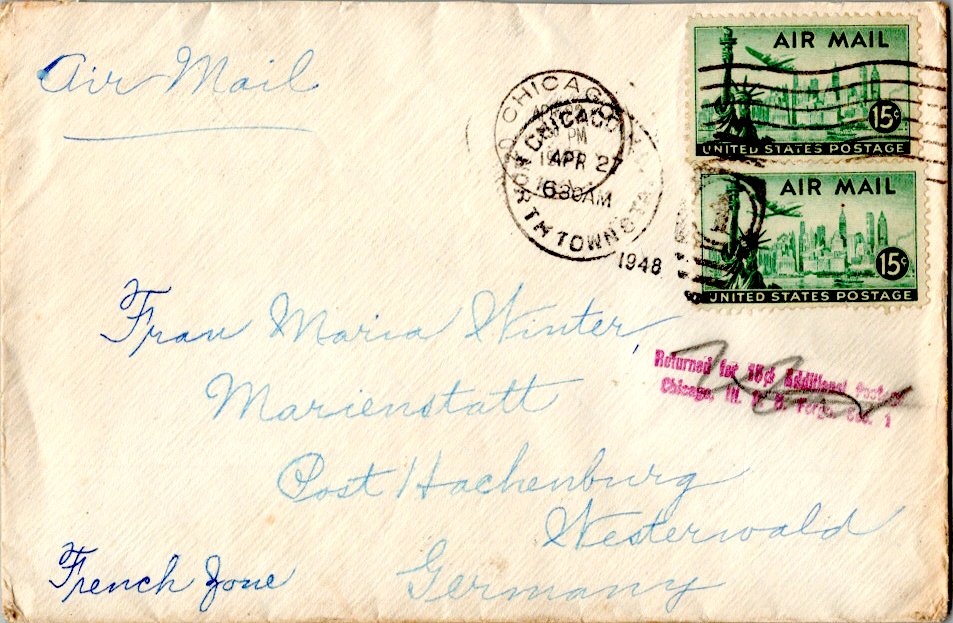 Air Mail
AIR MAIL
15¢
UNITED STATES POSTAGE
AIR MAIL
15¢
UNITED STATES POSTAGE
CHICAGO
CHICAGO
PM
APR 27
630AM
NORTHTOWN STA.
1948
Frau Maria Winter,
Marienstatt
Returned for 15¢ Additional Postage
Chicago, Ill. P. O. Forgn. Sec. 1
Post Hachenburg
Westerwald
French Zone
Germany